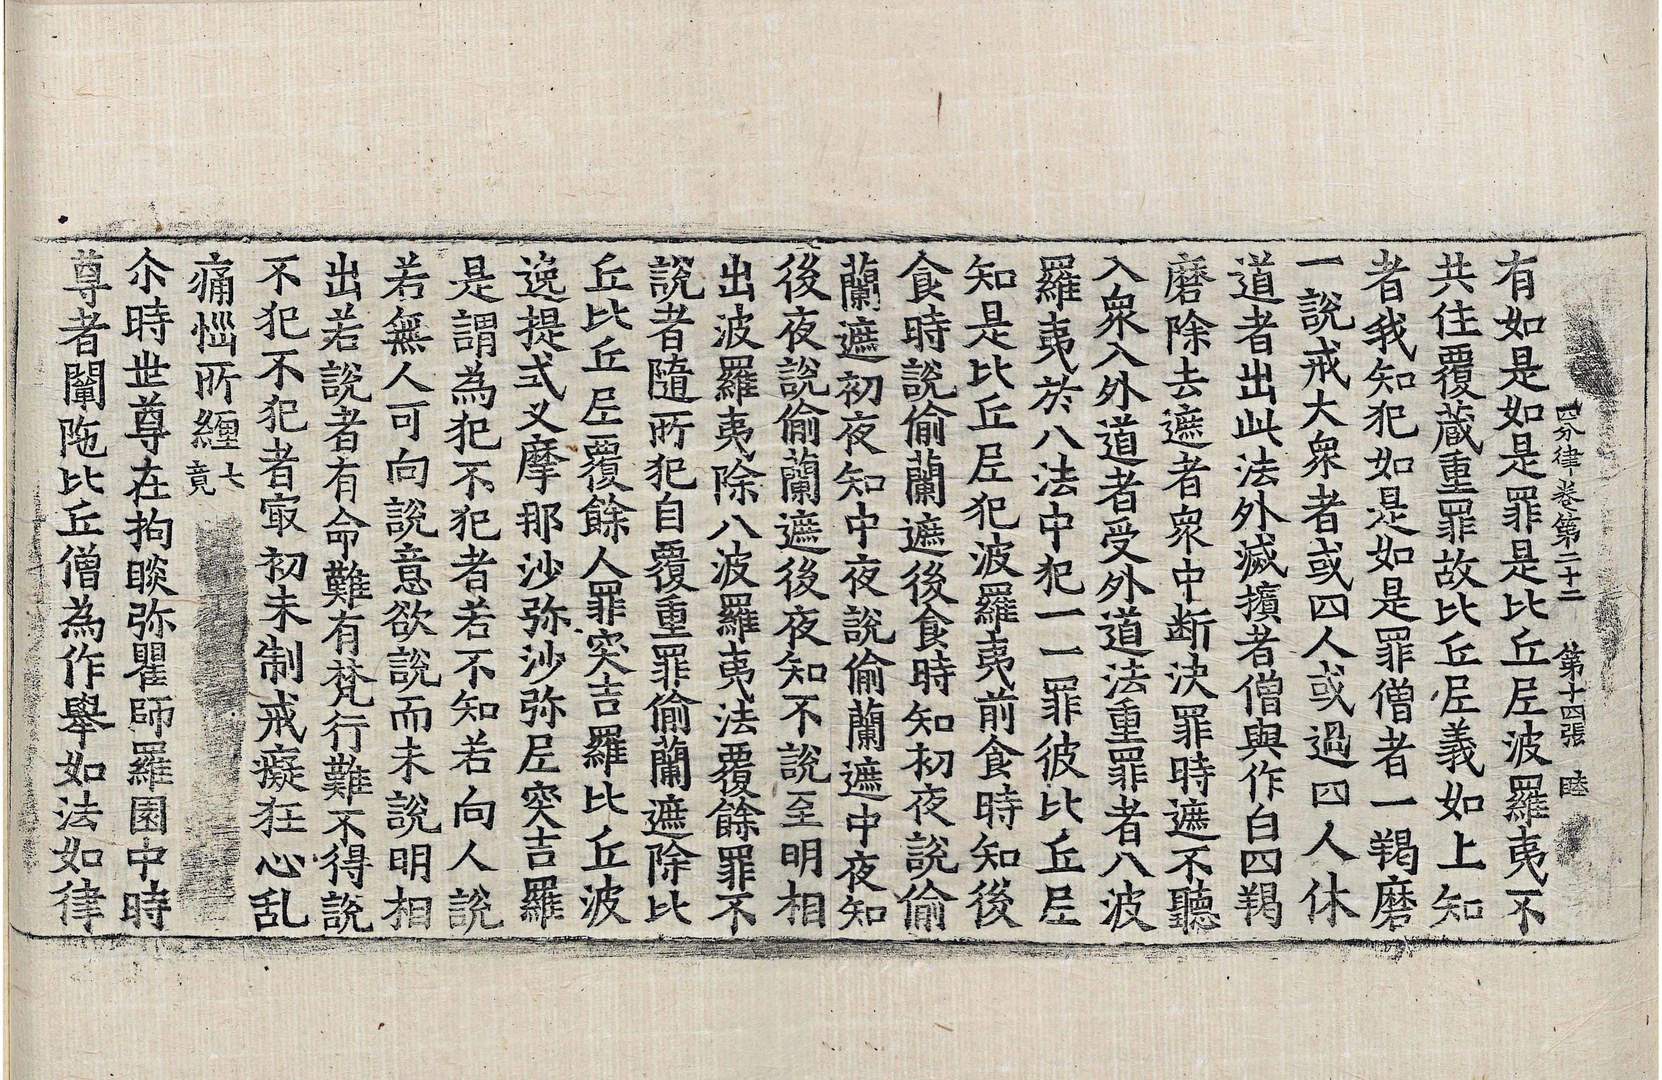 四分律卷第二十二 第十四張 睦
有如是如是罪是比丘尼波羅夷不
共住覆藏重罪故比丘尼義如上知
者我知犯如是如是罪僧者一羯磨
一說戒大衆者或四人或過四人休
道者出此法外滅擯者僧與作白四羯
磨除去遮者衆中断決罪時遮不聽
入衆入外道者受外道法重罪者八波
羅夷於八法中犯一一罪彼比丘尼
知是比丘尼犯波羅夷前食時知後
食時說偷蘭遮後食時知初夜說偷
蘭遮初夜知中夜說偷蘭遮中夜知
後夜說偷蘭遮後夜知不說至明相
出波羅夷除八波羅夷法覆餘罪不
說者隨所犯自覆重罪偷蘭遮除比
丘比丘尼覆餘人罪突吉羅比丘波
逸提式叉摩那沙弥沙弥尼突吉羅
是謂為犯不犯者若不知若向人說
若無人可向說意欲說而未說明相
出若說者有命難有梵行難不得說
不犯不犯者㝡初未制戒癡狂心乱
痛惱所纏七竟
尒時世尊在拘睒弥瞿師羅園中時
尊者闡陁比丘僧為作舉如法如律